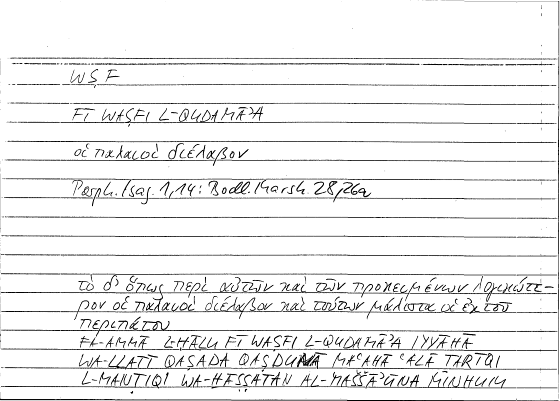 WṢF
FĪ WAṢFI L-QUDAMĀʾA
οἱ παλαιοὶ διέλαβον
Porph. Isag. 1,14: Bodl. Marsh. 28,26a
τὸ δ' ὅπως περὶ αὐτῶν καὶ τῶν προκειμένων λογικώτε-
ρον οἱ παλαιοὶ διέλαβον καὶ τούτων μάλιστα οἱ ἐκ τοῦ
περιπάτου
FA-AMMĀ L-ḤĀLU FĪ WAṢFI L-QUDAMĀʾA IYYĀHĀ
WA-LLATĪ QAṢADA QAṢDUNĀ MAʿAHĀ ʿALĀ ṬARĪQI
L-MANṬIQI WA-ḪĀṢṢATAN AL-MAŠŠĀʾŪNA MINHUM